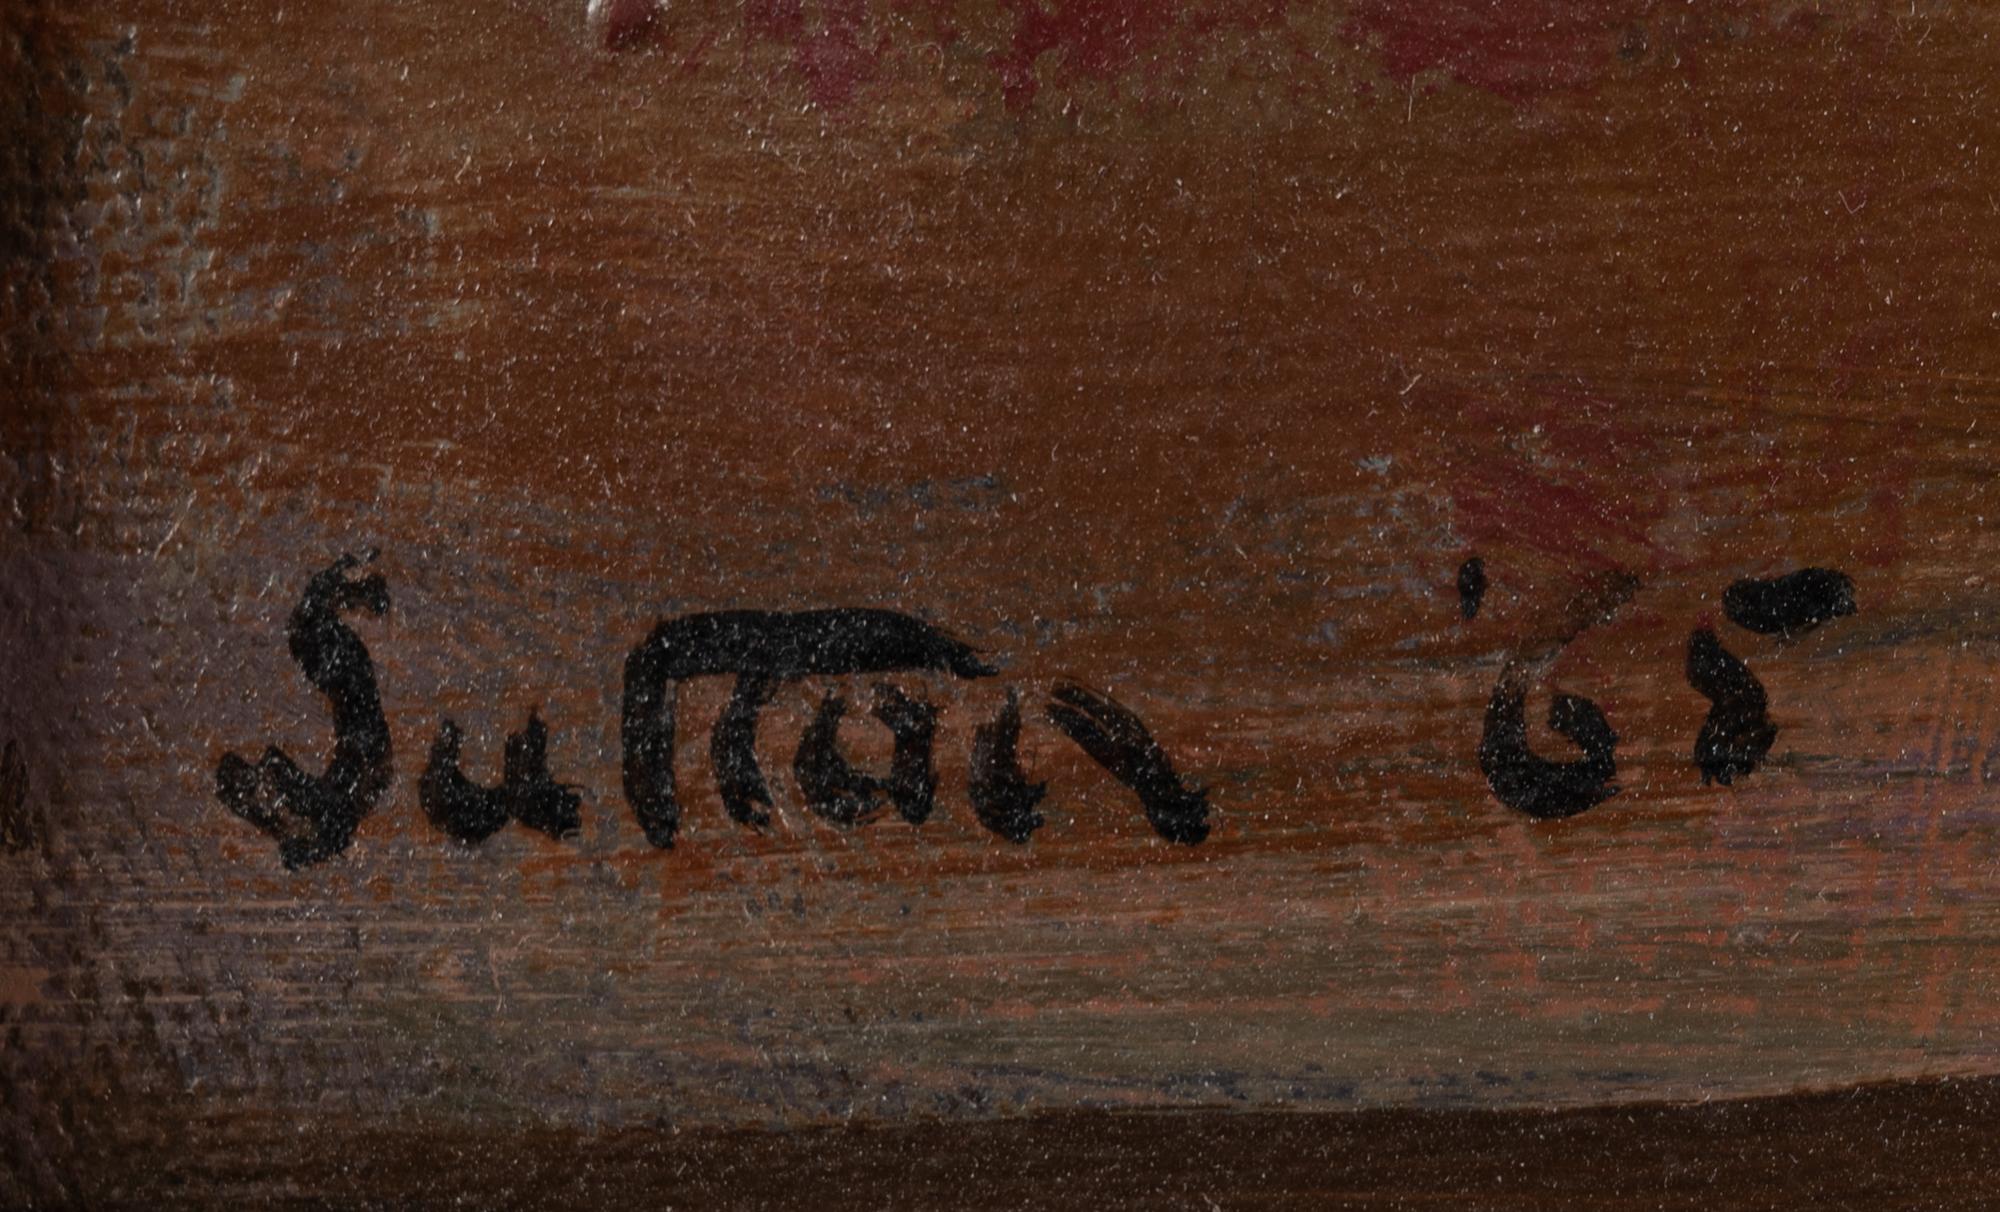 Suttan '65